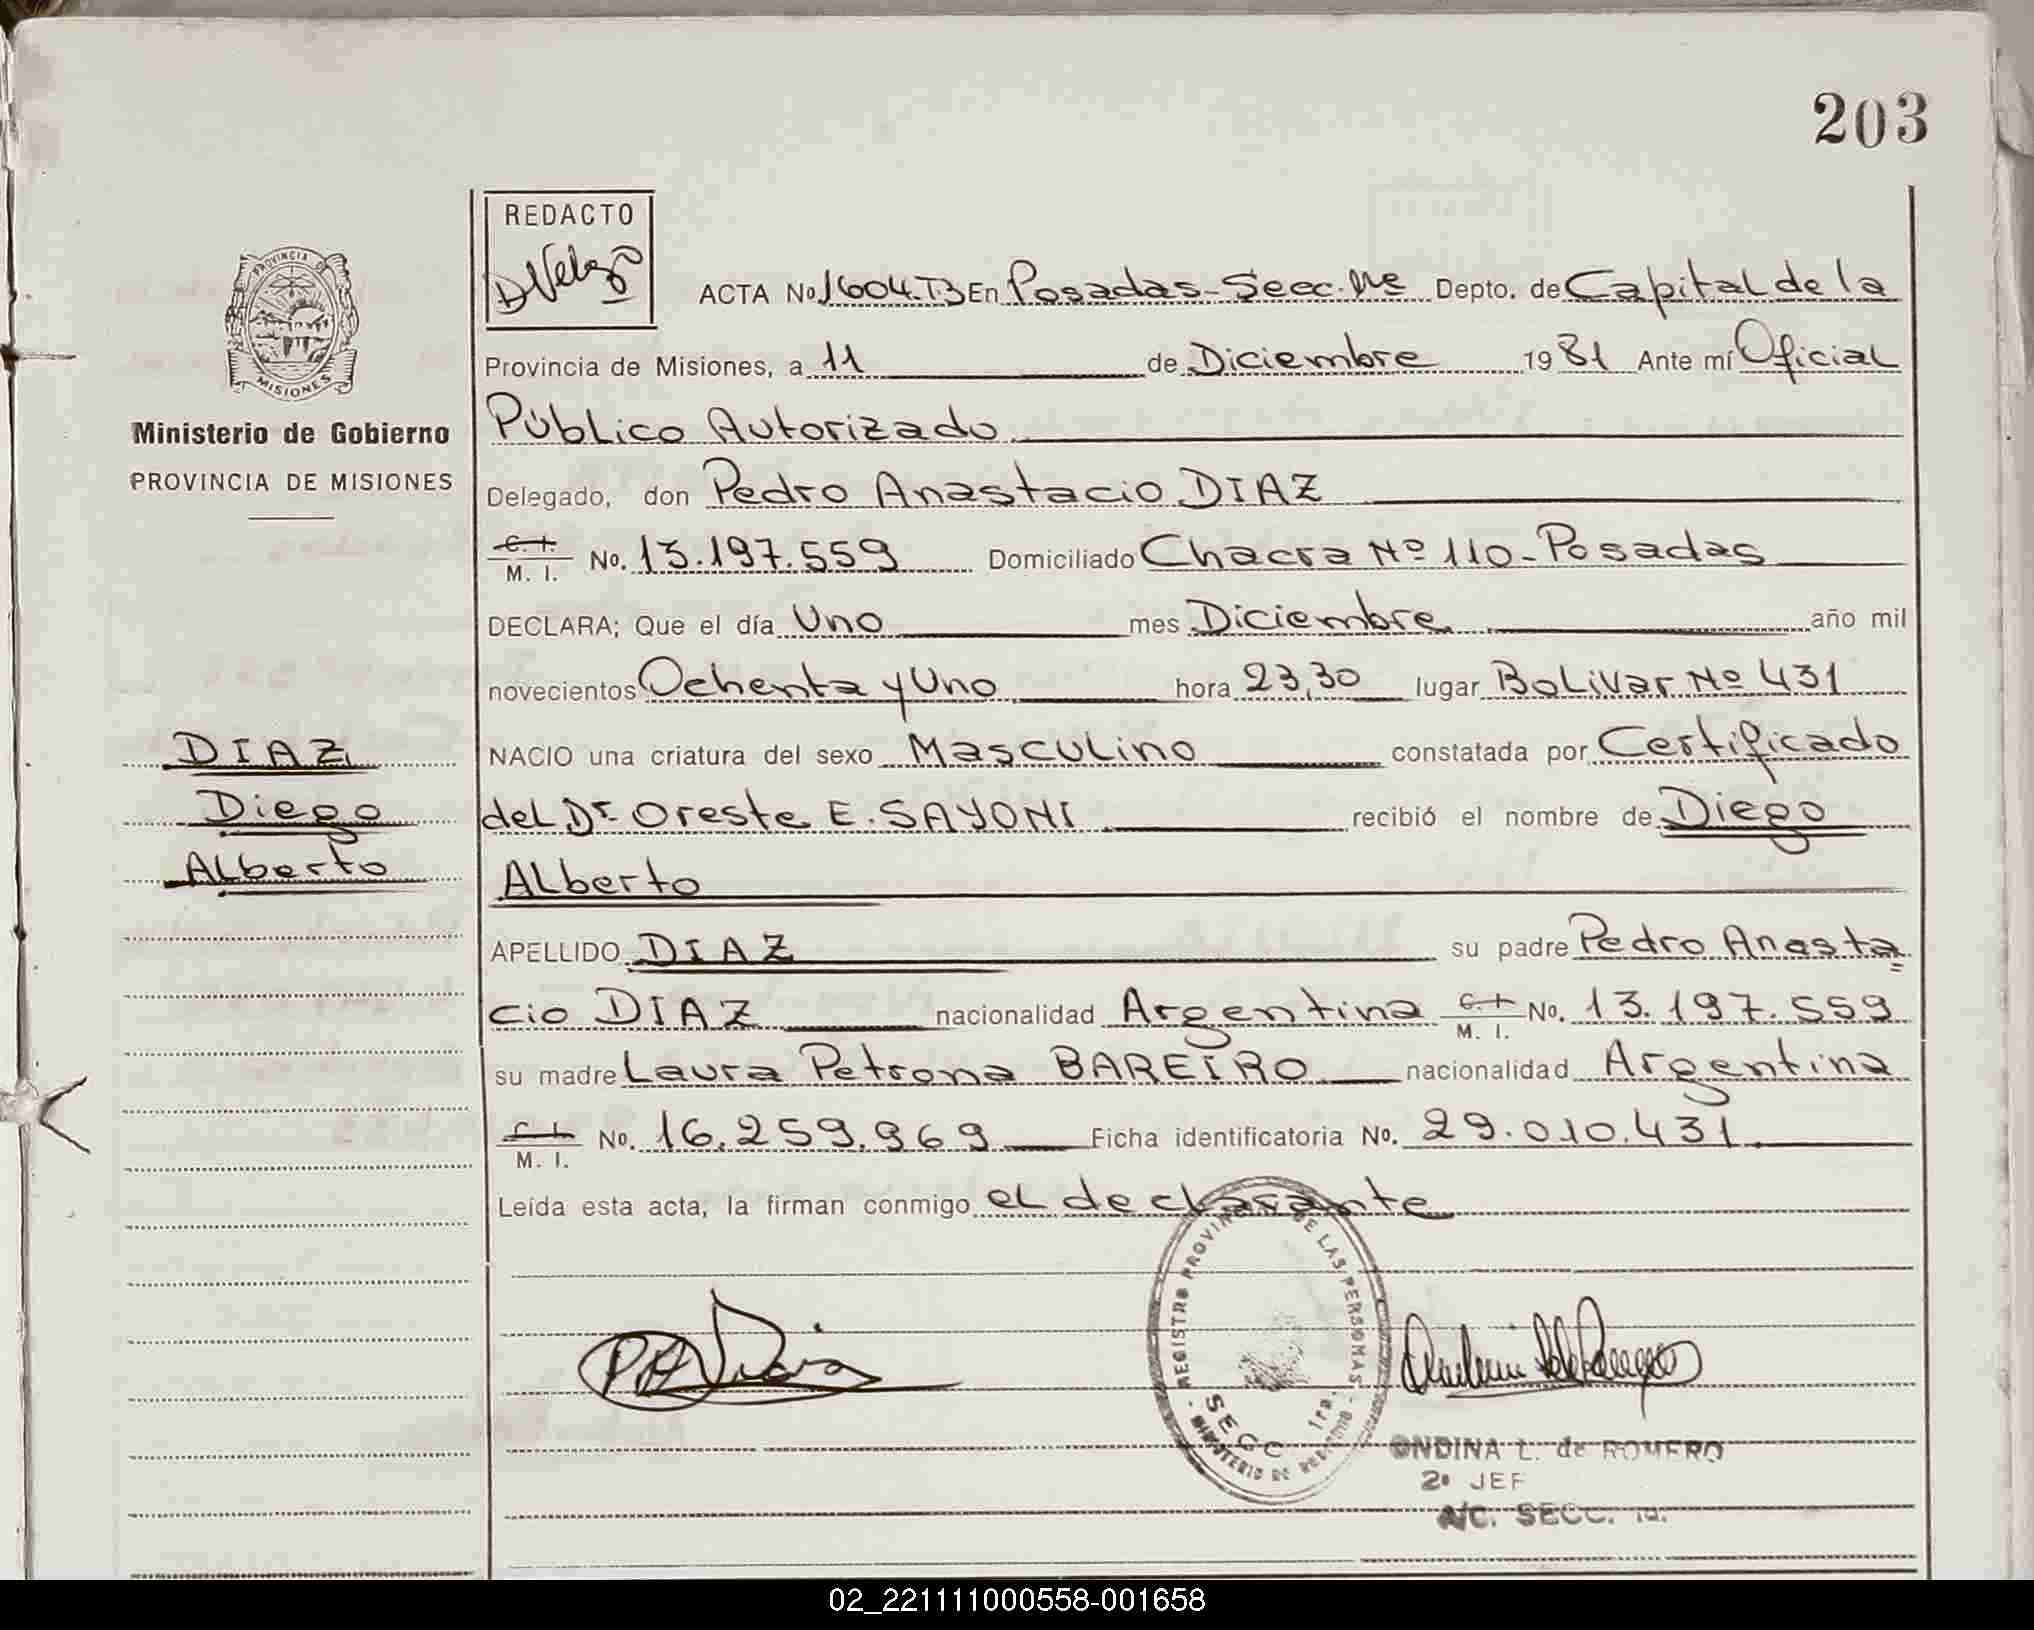 203
REDACTO
PROVINCIA DE
MISIONES
ACTA No. 1604.T3 En Posadas-Secc. 1ra Depto. de Capital de la
Provincia de Misiones, a 11 de Diciembre 1981 Ante mí Oficial
Ministerio de Gobierno
PROVINCIA DE MISIONES
Público Autorizado
Delegado, don Pedro Anastacio DIAZ
C. I.
M. I. No. 13.197.559 Domiciliado Chacra Nº 110-Posadas
DECLARA; Que el día Uno mes Diciembre año mil
novecientos Ochenta y Uno hora 23,30 lugar Bolivar Nº 431
DIAZ
Diego
Alberto
NACIO una criatura del sexo Masculino constatada por Certificado
del Dr. Oreste E. SAYONI recibió el nombre de Diego
Alberto
APELLIDO DIAZ su padre Pedro Anasta
cio DIAZ nacionalidad Argentina C. I. M. I. No. 13.197.559
su madre Laura Petrona BAREIRO nacionalidad Argentina
C. I.
M. I. No. 16.259.969 Ficha identificatoria No. 29.010.431
Leída esta acta, la firman conmigo el declarante
REGISTRO PROVINCIAL DE LAS PERSONAS
SECC 1ra.
MINISTERIO DE GOBIERNO
ONDINA L. de ROMERO
2º JEF
A/C. SECC. 1a.
02_221111000558-001658